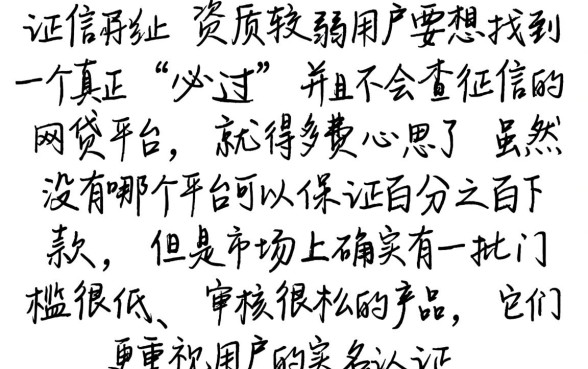 证信 资质较弱用户要想找到
一个真正“必过”并且不会查征信的
网贷平台，就得多费心思了 虽然
没有哪个平台可以保证百分之百下
款，但是市场上确实有一批门
槛很低、审核很松的产品，它们
更重视用户的实名认证